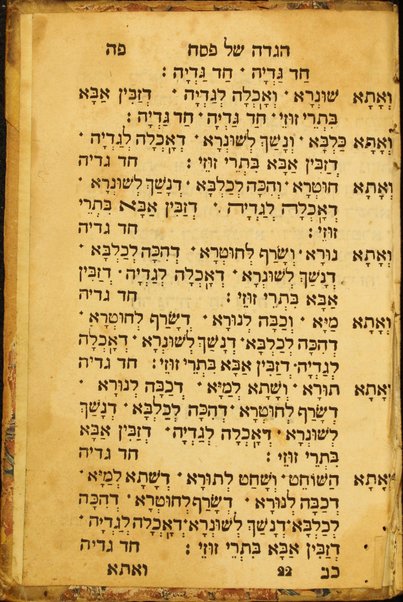 הגדה של פסח פה
חַד גַּדְיָה · חַד גַּדְיָה :
וְאָתָא שׁוּנְרָא · וְאָכְלָה לְגַדְיָה · דְזַבִּין אַבָּא
בִּתְרֵי זוּזֵי · חַד גַּדְיָה · חַד גַּדְיָה :
וְאָתָא כַלְבָּא · וְנָשַׁךְ לְשׁוּנְרָא · דְאָכְלָה לְגַדְיָה ·
דְזַבִּין אַבָּא בִּתְרֵי זוּזֵי : חד גדיה
וְאָתָא חוּטְרָא · וְהִכָּה לְכַלְבָּא · דְנָשַׁךְ לְשׁוּנְרָא ·
דְאָכְלָה לְגַדְיָה · דְזַבִּין אַבָּא בִּתְרֵי
זוּזֵי : חד גדיה
וְאָתָא נוּרָא · וְשָׂרַף לְחוּטְרָא · דְהִכָּה לְכַלְבָּא ·
דְנָשַׁךְ לְשׁוּנְרָא · דְאָכְלָה לְגַדְיָה · דְזַבִּין
אַבָּא בִּתְרֵי זוּזֵי : חד גדיה
וְאָתָא מַיָּא · וְכָבָה לְנוּרָא · דְשָׂרַף לְחוּטְרָא ·
דְהִכָּה לְכַלְבָּא · דְנָשַׁךְ לְשׁוּנְרָא · דְאָכְלָה
לְגַדְיָה · דְזַבִּין אַבָּא בִּתְרֵי זוּזֵי : חד גדיה
וְאָתָא תוֹרָא · וְשָׁתָא לְמַיָּא · דְכָבָה לְנוּרָא ·
דְשָׂרַף לְחוּטְרָא · דְהִכָּה לְכַלְבָּא · דְנָשַׁךְ
לְשׁוּנְרָא · דְאָכְלָה לְגַדְיָה · דְזַבִּין אַבָּא
בִּתְרֵי זוּזֵי : חד גדיה
וְאָתָא הַשּׁוֹחֵט · וְשָׁחַט לְתוֹרָא · דְשָׁתָא לְמַיָּא ·
דְכָבָה לְנוּרָא · דְשָׂרַף לְחוּטְרָא · דְהִכָּה
לְכַלְבָּא · דְנָשַׁךְ לְשׁוּנְרָא · דְאָכְלָה לְגַדְיָה ·
דְזַבִּין אַבָּא בִּתְרֵי זוּזֵי : חד גדיה
כב 22 ואתא